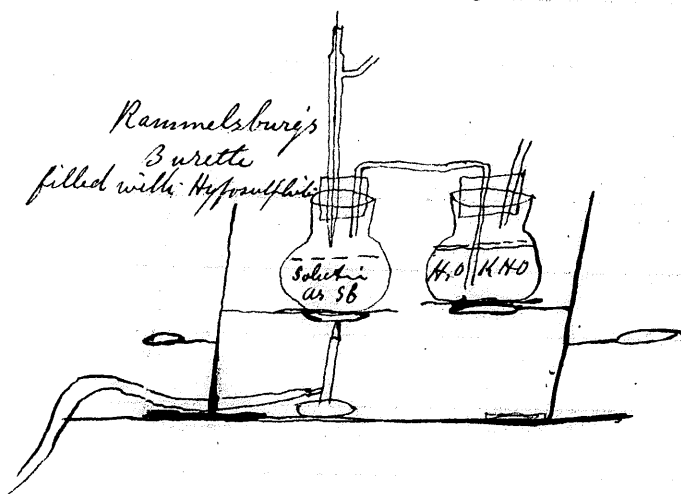 Rammelsburg's
Burette
filled with Hyposulphite
Solution
as Sb
H2O KHO